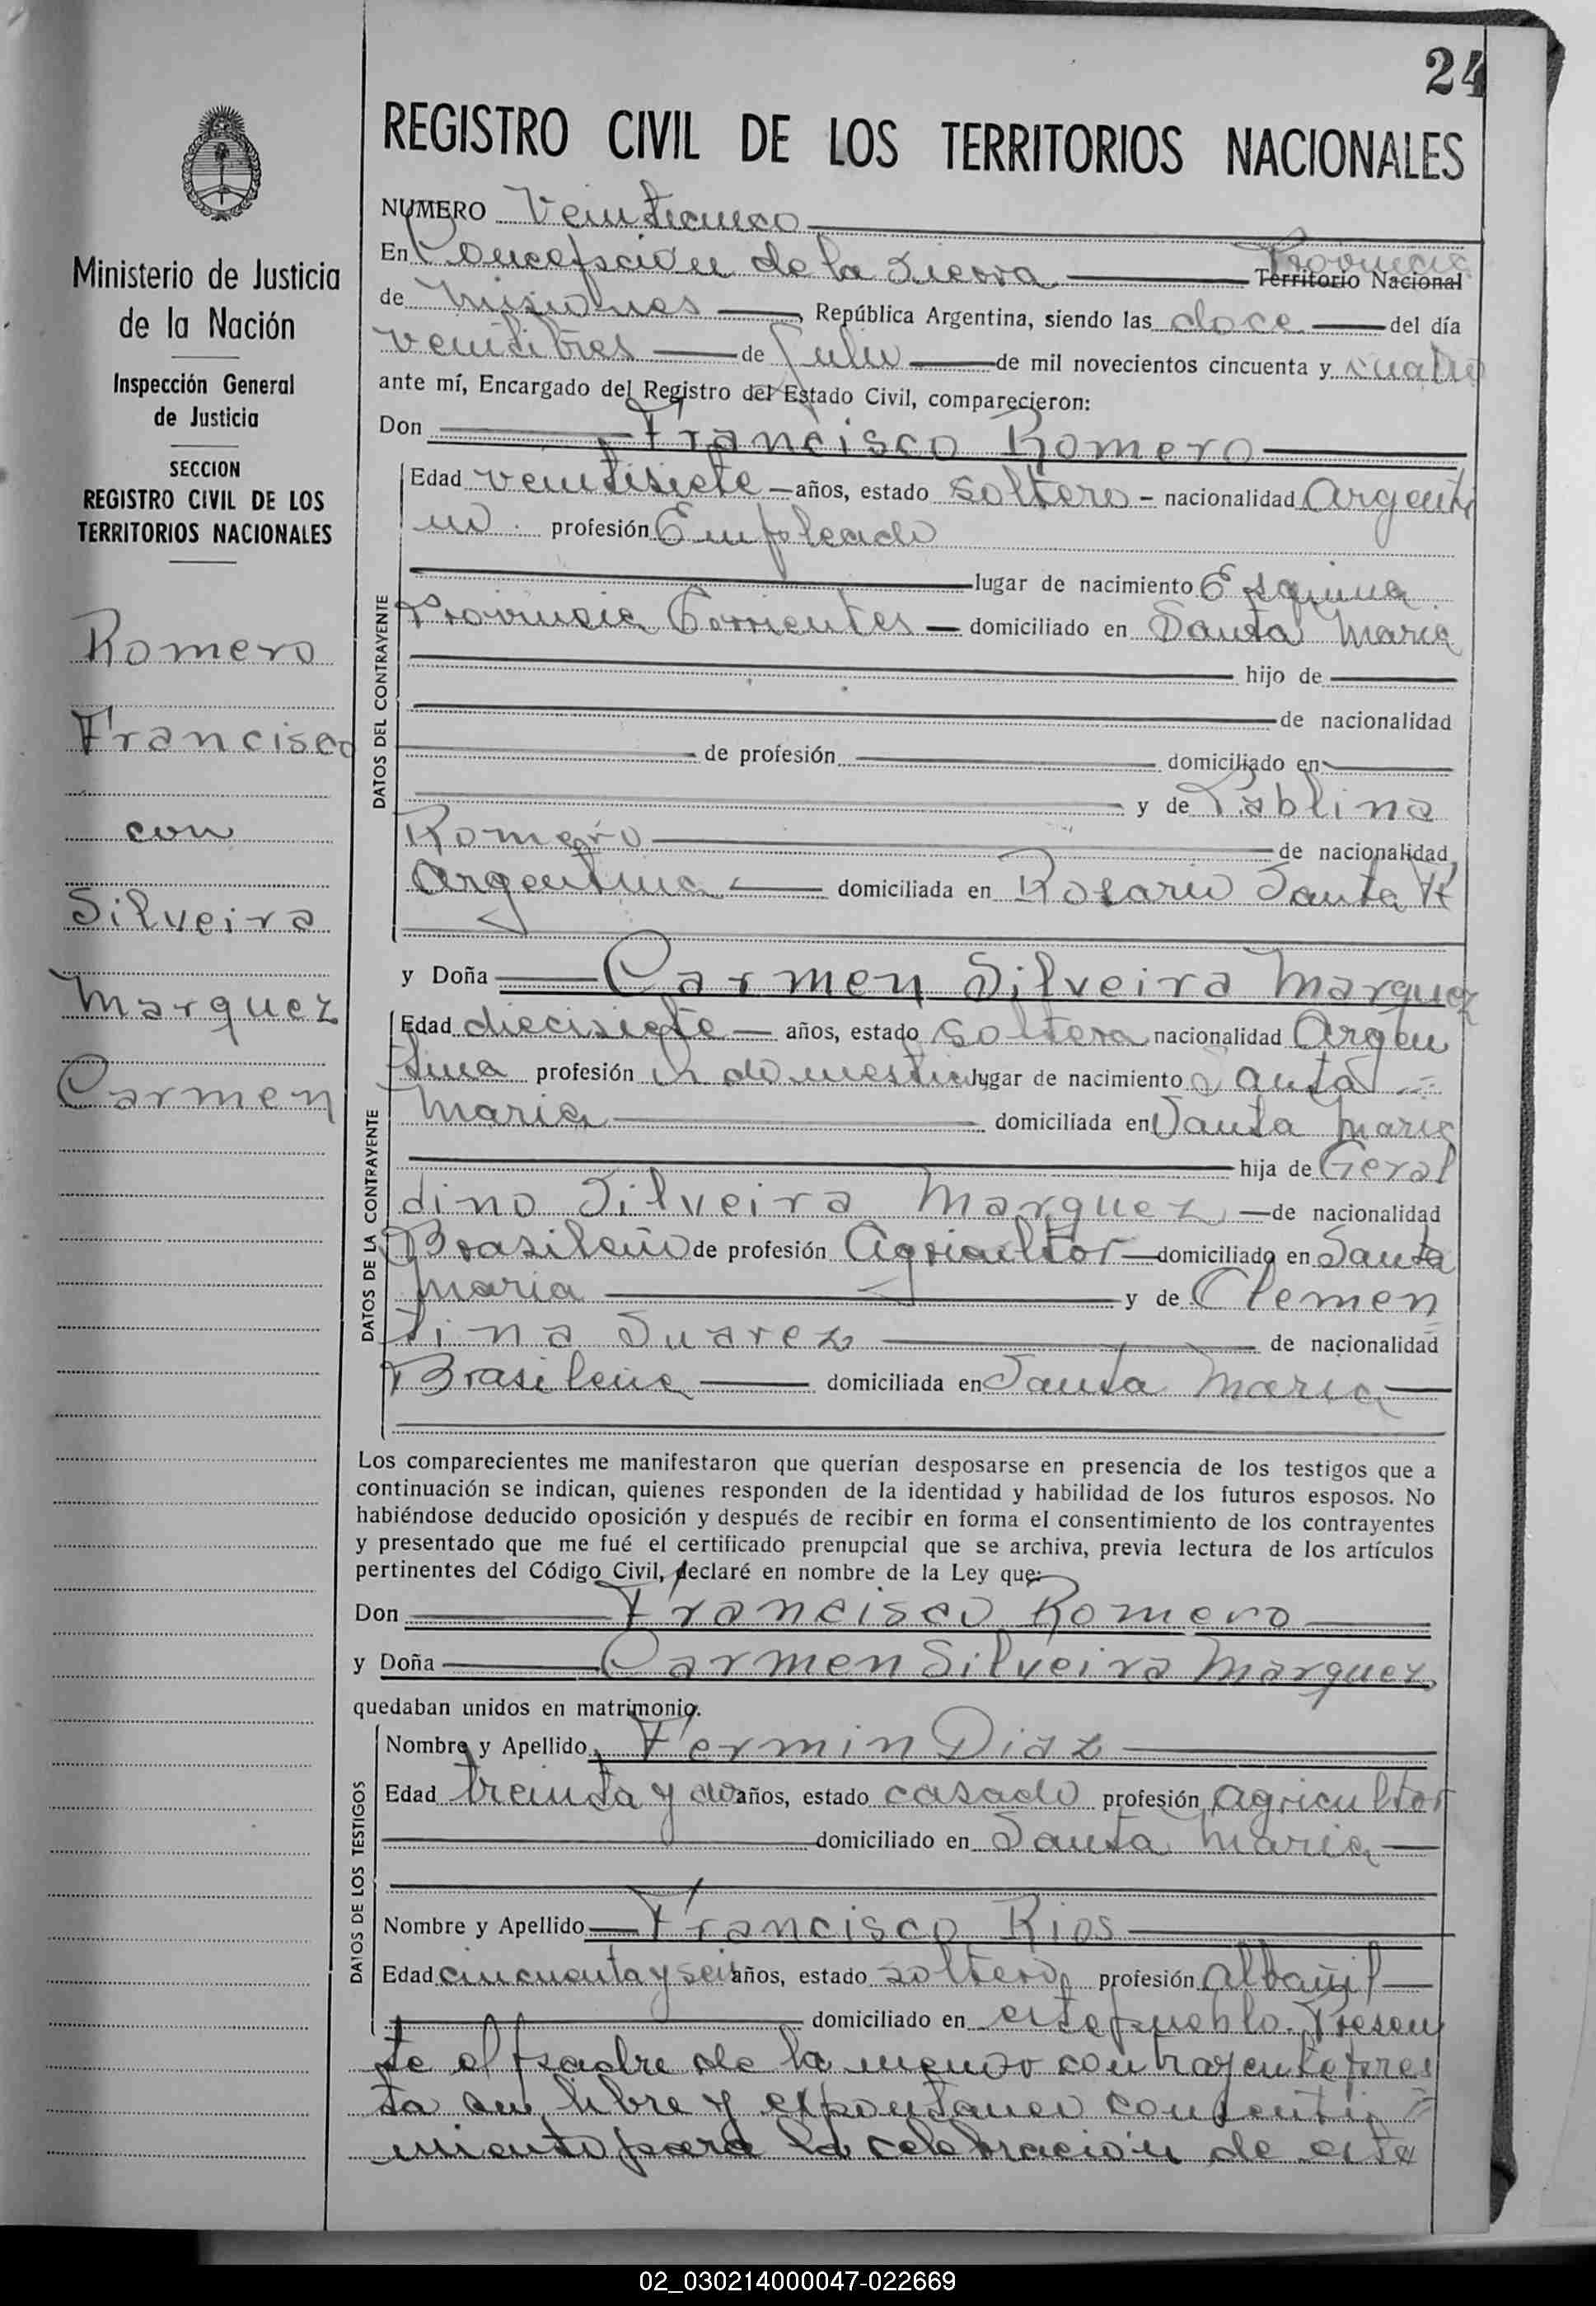 24
REGISTRO CIVIL DE LOS TERRITORIOS NACIONALES
Ministerio de Justicia
de la Nación
Inspección General
de Justicia
SECCION
REGISTRO CIVIL DE LOS
TERRITORIOS NACIONALES
Romero
Francisco
con
Silveira
Marquez
Carmen
NUMERO Veinticinco
En Concepción de la Sierra Provincia Territorio Nacional
de Misiones, República Argentina, siendo las doce del día
veintitres de Julio de mil novecientos cincuenta y cuatro
ante mí, Encargado del Registro del Estado Civil, comparecieron:
Don Francisco Romero
DATOS DEL CONTRAYENTE
Edad veintisiete años, estado soltero - nacionalidad Argenti
no. profesión Empleado
lugar de nacimiento Esquina
Provincia Corrientes domiciliado en Santa Maria
hijo de
de nacionalidad
de profesión domiciliado en
y de Pablina
Romero de nacionalidad
Argentina domiciliada en Rosario Santa Fé
y Doña Carmen Silveira Marquez
DATOS DE LA CONTRAYENTE
Edad diecisiete años, estado soltera nacionalidad Argen
tina profesión domestica lugar de nacimiento Santa
Maria domiciliada en Santa Maria
hija de Geral
dino Silveira Marquez de nacionalidad
Brasileño de profesión Agricultor domiciliado en Santa
Maria y de Clemen
tina Suarez de nacionalidad
Brasileña domiciliada en Santa Maria
Los comparecientes me manifestaron que querían desposarse en presencia de los testigos que a
continuación se indican, quienes responden de la identidad y habilidad de los futuros esposos. No
habiéndose deducido oposición y después de recibir en forma el consentimiento de los contrayentes
y presentado que me fué el certificado prenupcial que se archiva, previa lectura de los artículos
pertinentes del Código Civil, declaré en nombre de la Ley que:
Don Francisco Romero
y Doña Carmen Silveira Marquez
quedaban unidos en matrimonio.
DATOS DE LOS TESTIGOS
Nombre y Apellido Fermin Diaz
Edad treinta y dos años, estado casado profesión agricultor
domiciliado en Santa Maria
Nombre y Apellido Francisco Rios
Edad cincuenta y seis años, estado soltero profesión albañil
domiciliado en este pueblo. Presen
te el padre de la menor contrayente pres
ta su libre y espontaneo consenti
miento para la celebración de este
02_030214000047-022669